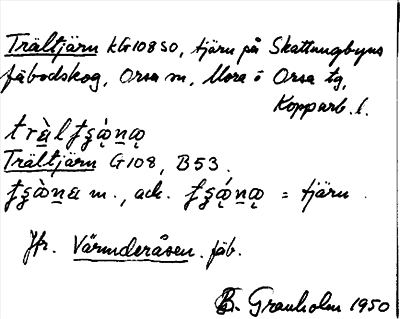 Trältjärn KG108SO, tjärn på Skattungbyns
fäbodskog, Orsa sn, Mora o Orsa tg,
Kopparb. l.
Trältjärn G108, B53.
m., ack. = tjärn.
Jfr. Värmderåsen. fäb.
B. Granholm 1950